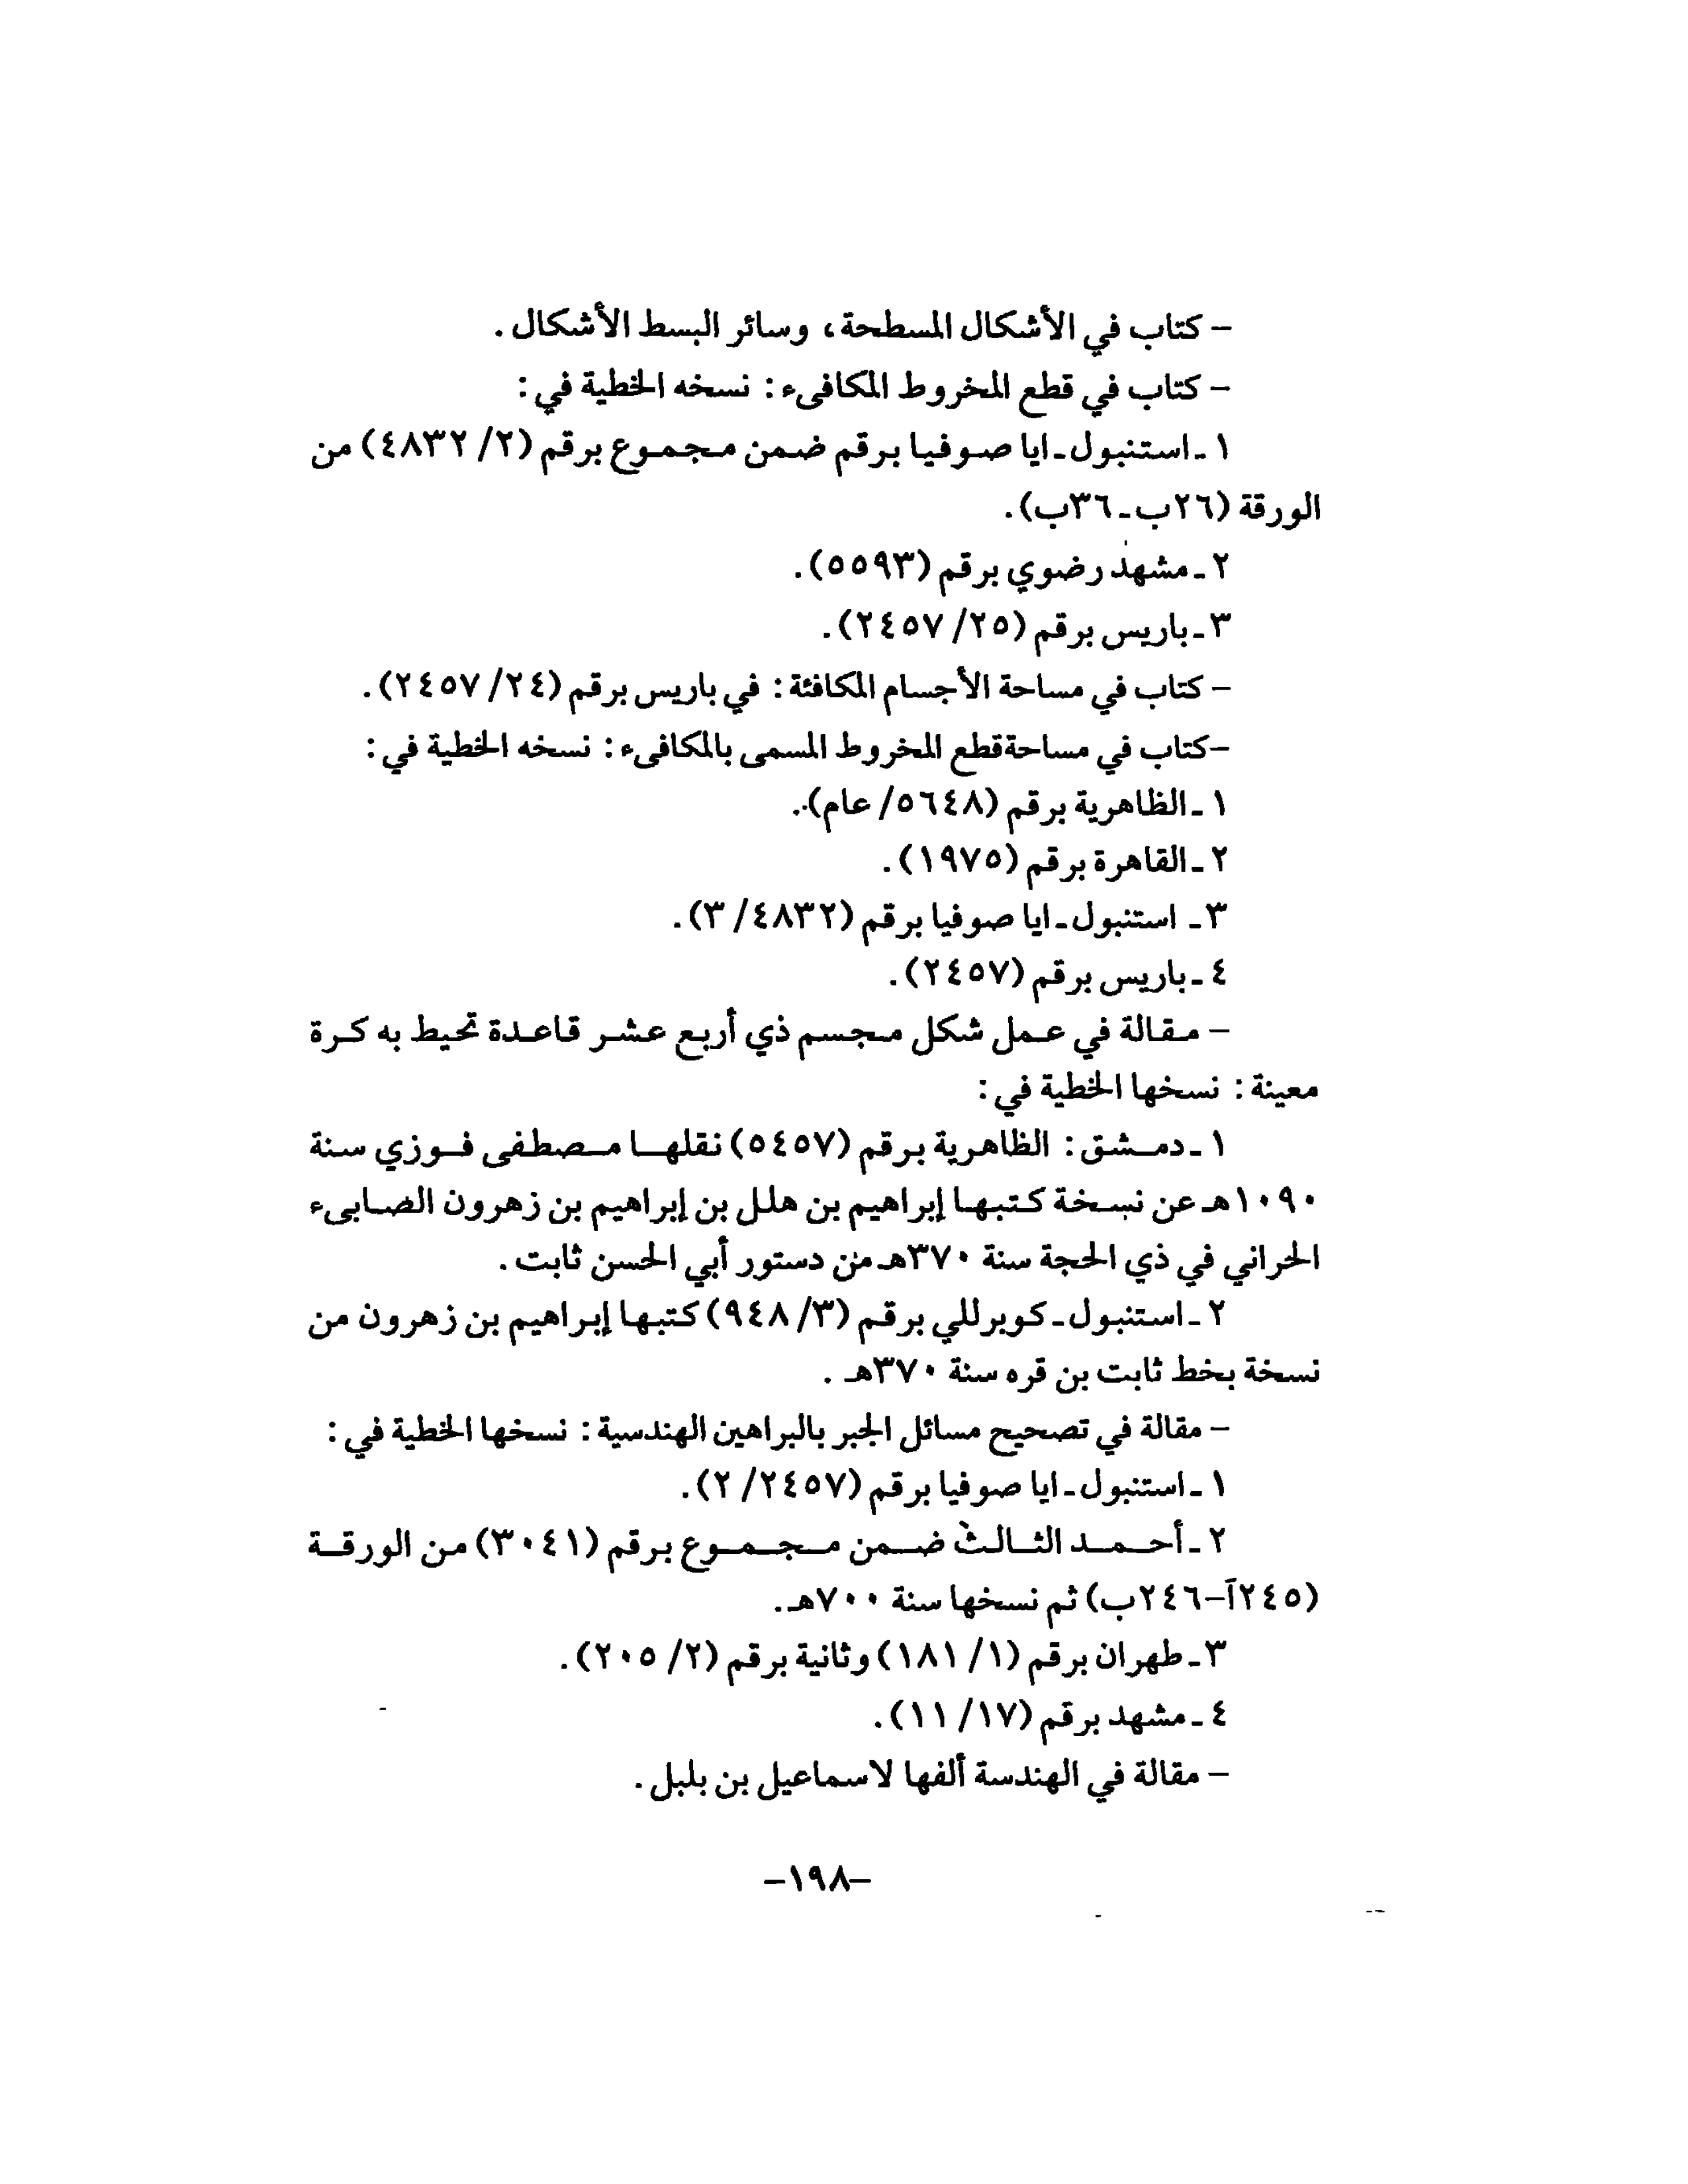 – كتاب في الأشكال المسطحة، وسائر البسط الأشكال.
– كتاب في قطع المخروط المكافىء: نسخه الخطية في:
١ ـ استنبول ـ ايا صوفيا برقم ضمن مجموع برقم (٢/ ٤٨٣٢) من
الورقة (٢٦ب ـ ٣٦ب).
٢ ـ مشهد رضوي برقم (٥٥٩٣).
٣ ـ باريس برقم (٢٥/ ٢٤٥٧).
– كتاب في مساحة الأجسام المكافئة: في باريس برقم (٢٤/ ٢٤٥٧).
–كتاب في مساحةقطع المخروط المسمى بالمكافىء: نسخه الخطية في:
١ ـ الظاهرية برقم (٥٦٤٨/ عام).
٢ ـ القاهرة برقم (١٩٧٥).
٣ ـ استنبول ـ ايا صوفيا برقم (٤٨٣٢/ ٣).
٤ ـ باريس برقم (٢٤٥٧).
– مقالة في عمل شكل مجسم ذي أربع عشر قاعدة تحيط به كرة
معينة: نسخها الخطية في:
١ ـ دمشق: الظاهرية برقم (٥٤٥٧) نقلها مصطفى فوزي سنة
١٠٩٠هـ عن نسخة كتبها إبراهيم بن هلل بن إبراهيم بن زهرون الصابىء
الحراني في ذي الحجة سنة ٣٧٠هـ من دستور أبي الحسن ثابت.
٢ ـ استنبول ـ كوبرللي برقم (٣/ ٩٤٨) كتبها إبراهيم بن زهرون من
نسخة بخط ثابت بن قره سنة ٣٧٠هـ.
– مقالة في تصحيح مسائل الجبر بالبراهين الهندسية: نسخها الخطية في:
١ ـ استنبول ـ ايا صوفيا برقم (٢٤٥٧/ ٢).
٢ ـ أحمد الثالث ضمن مجموع برقم (٣٠٤١) من الورقة
(٢٤٥آ–٢٤٦ب) ثم نسخها سنة ٧٠٠هـ.
٣ ـ طهران برقم (١/ ١٨١) وثانية برقم (٢/ ٢٠٥).
٤ ـ مشهد برقم (١٧/ ١١).
– مقالة في الهندسة ألفها لاسماعيل بن بلبل.
–١٩٨–